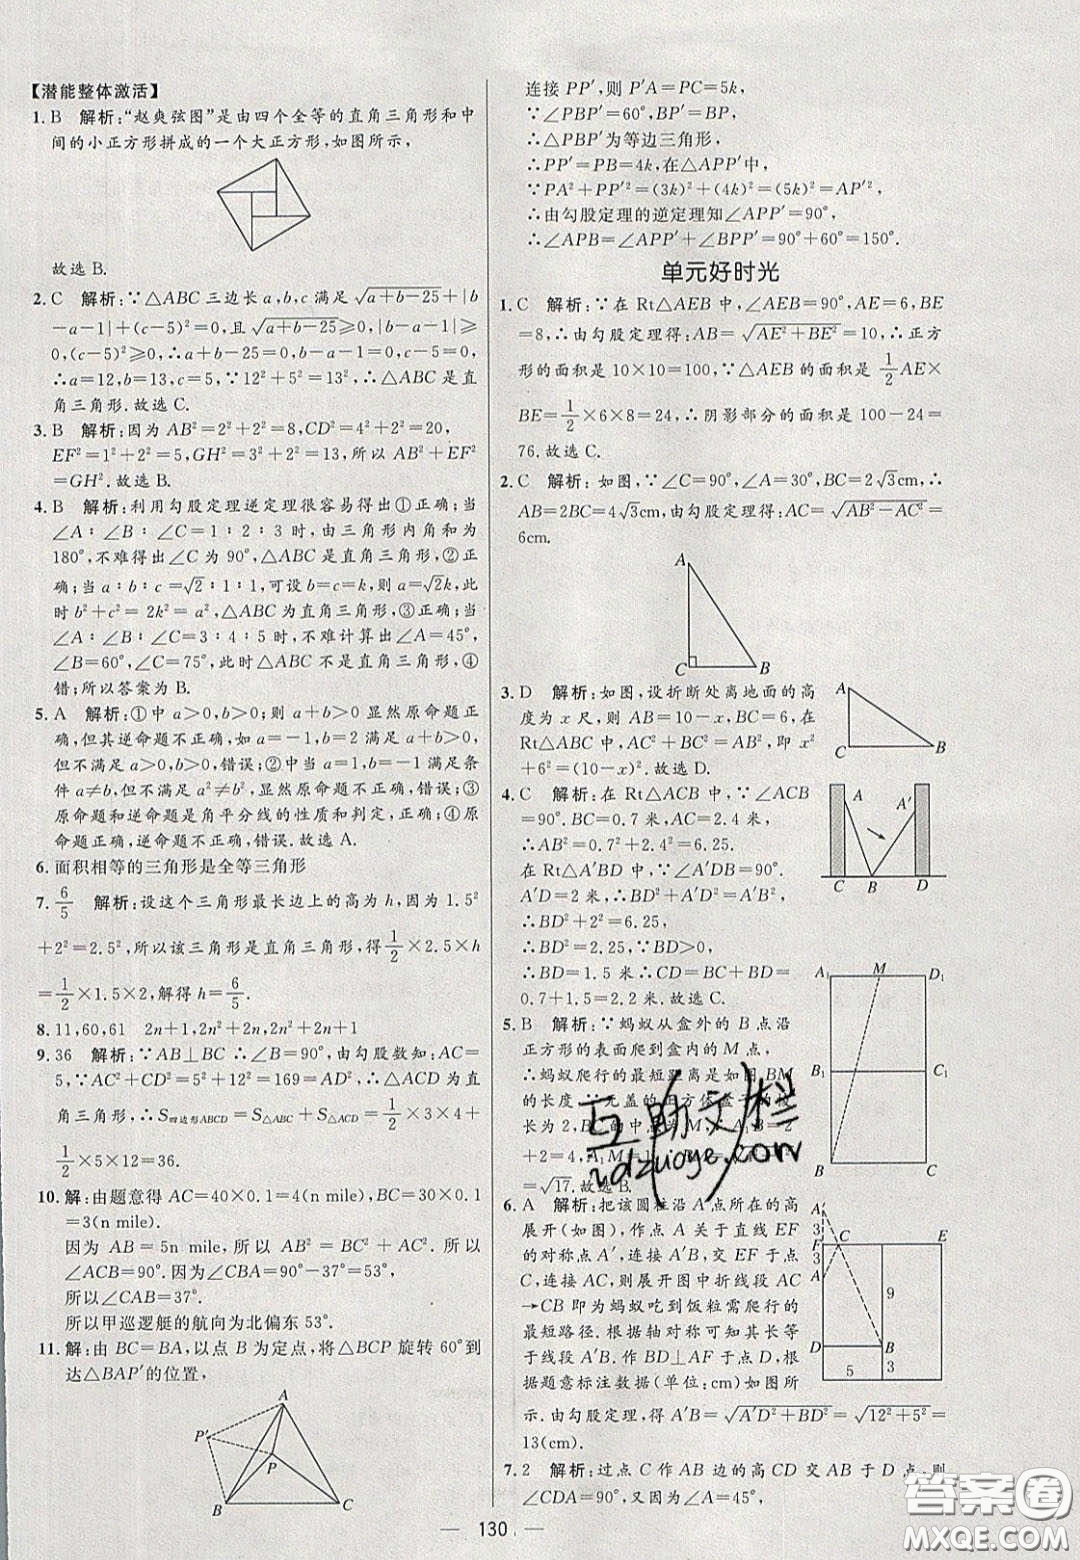 【潜能整体激活】
1. B 解析:“赵爽弦图”是由四个全等的直角三角形和中
间的小正方形拼成的一个大正方形,如图所示,
故选 B.
2. C 解析:∵△ABC 三边长 a,b,c 满足 √(a+b-25)+|b
-a-1|+(c-5)²=0,且√(a+b-25)≥0,|b-a-1|≥
0,(c-5)²≥0,∴a+b-25=0,b-a-1=0,c-5=0,
∴a=12,b=13,c=5,∵12²+5²=13²,∴△ABC 是直
角三角形.故选 C.
3. B 解析:因为 AB²=2²+2²=8,CD²=4²+2²=20,
EF²=1²+2²=5,GH²=3²+2²=13,所以 AB²+EF²
=GH².故选 B.
4. B 解析:利用勾股定理逆定理很容易得出①正确;当
∠A∶∠B∶∠C=1∶2∶3 时,由三角形内角和为
180°,不难得出∠C 为 90°,△ABC 是直角三角形,②正
确;当 a∶b∶c=√2∶1∶1,可设 b=c=k,则 a=√2k,此
时 b²+c²=2k²=a²,△ABC 为直角三角形,③正确;当
∠A∶∠B∶∠C=3∶4∶5 时,不难计算出∠A=45°,
∠B=60°,∠C=75°,此时△ABC 不是直角三角形,④
错;所以答案为 B.
5. A 解析:①中 a>0,b>0;则 a+b>0 显然原命题正
确,但其逆命题不正确,如 a=-1,b=2 满足 a+b>0,
但不满足 a>0,b>0,错误;②中当 a=1,b=-1 满足条
件 a≠b,但不满足 a²≠b²,显然原命题不正确,错误;③
原命题和逆命题是角平分线的性质和判定,正确;④原
命题正确,逆命题不正确,错误.故选 A.
6. 面积相等的三角形是全等三角形
7. 6/5 解析:设这个三角形最长边上的高为 h,因为 1.5²
+2²=2.5²,所以该三角形是直角三角形,得1/2×2.5×h
=1/2×1.5×2,解得 h=6/5.
8. 11,60,61 2n+1,2n²+2n,2n²+2n+1
9. 36 解析:∵AB⊥BC ∴∠B=90°,由勾股数知:AC=
5,∵AC²+CD²=5²+12²=169=AD²,∴△ACD 为直
角三角形,∴S四边形ABCD=S△ABC+S△ACD=1/2×3×4+
1/2×5×12=36.
10. 解:由题意得 AC=40×0.1=4(n mile),BC=30×0.1
=3(n mile).
因为 AB=5n mile,所以 AB²=BC²+AC²,所以
∠ACB=90°.因为∠CBA=90°-37°=53°,
所以∠CAB=37°.
所以甲巡逻艇的航向为北偏东 53°.
11. 解:由 BC=BA,以点 B 为定点,将△BCP 旋转 60°到
达△BAP′的位置,
A
P′
P
B
C
连接 PP′,则 P′A=PC=5k,
∵∠PBP′=60°,BP=BP′,
∴△PBP′为等边三角形,
∴PP′=PB=4k,在△APP′中,
∵PA²+PP′²=(3k)²+(4k)²=(5k)²=AP′²,
∴由勾股定理的逆定理知∠APP′=90°,
∴∠APB=∠APP′+∠BPP′=90°+60°=150°.
单元好时光
1. C 解析:∵在 Rt△AEB 中,∠AEB=90°,AE=6,BE
=8,∴由勾股定理得:AB=√(AE²+BE²)=10,∴正方
形的面积是 10×10=100,∵△AEB 的面积是 1/2 AE×
BE=1/2×6×8=24,∴阴影部分的面积是 100-24=
76.故选 C.
2. C 解析:如图,∠C=90°,∠A=30°,BC=2√3cm,∴
AB=2BC=4√3cm,由勾股定理得:AC=√(AB²-AC²)=
6cm.
A
C
B
3. D 解析:如图,设折断处离地面的高
度为 x 尺,则 AB=10-x,BC=6,在
Rt△ABC 中,AC²+BC²=AB²,即 x²
+6²=(10-x)².故选 D.
A
C
B
4. C 解析:在 Rt△ACB 中,∵∠ACB
=90°.BC=0.7 米,AC=2.4 米,
∴AB²=0.7²+2.4²=6.25.
在 Rt△A′BD 中,∵∠A′DB=90°,
A′D=2 米,BD²+A′D²=A′B²,
∴BD²+2²=6.25,
∴BD²=2.25,∵BD>0,
∴BD=1.5 米∴CD=BC+BD=
0.7+1.5=2.2 米.故选 C.
A
A′
C
B
D
5. B 解析:∵蚂蚁从盒外的 B 点沿
正方形的表面爬到盒内的 M 点,
∴蚂蚁爬行的最短距离是如图 BM
的长度,∵无盖的正方体盒子的棱
长为 2,BC的中点为 M,∴A₁B=2
+2=4,A₁M=1,∴BM=√(4²+1²)
=√17.故选 B.
A₁
M
D₁
B₁
C₁
B
C
6. A 解析:把该圆柱沿 A 点所在的高
展开(如图),作点 A 关于直线 EF
的对称点 A′,连接 A′B,交 EF 于点
C,连接 AC,则展开图中折线段 AC
→CB 即为蚂蚁吃到饭粒需爬行的
最短路径.根据轴对称可知其长等
于线段 A′B.作 BD⊥AF 于点 D,根
据题意标注数据(单位:cm)如图所
示.由勾股定理,得 A′B=√(A′D²+BD²)=√(12²+5²)=
13(cm).
A′
3
C
E
3
A
9
D
B
5
3
7. 2 解析:过点 C 作 AB 边的高 CD 交 AB 于 D 点,则
∠CDA=90°,又因为∠A=45°,
130
互助文栏
udzuoye.com
答案圈
MXQE.COM